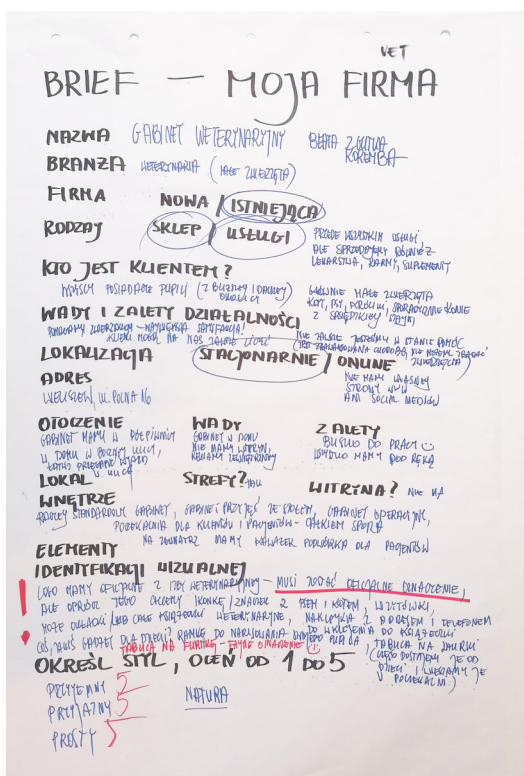 VET
BRIEF — MOJA FIRMA
NAZWA GABINET WETERYNARYJNY BEATA
KOREMBA
BRANŻA WETERYNARIA (MAŁE ZWIERZĘTA)
FIRMA NOWA / ISTNIEJĄCA
RODZAJ SKLEP / USŁUGI PRZEDE WSZYSTKIM USŁUGI
ALE SPRZEDAJEMY RÓWNIEŻ
LEKARSTWA, KARMY, SUPLEMENTY
KTO JEST KLIENTEM?
WSZYSCY POSIADACZE PUPILI (Z BLIŻSZEJ I DALSZEJ
OKOLICY)
GŁÓWNIE MAŁE ZWIERZĘTA
KOTY, PSY, KRÓLIKI, SPORADYCZNIE KONIE
Z SĄSIEDZKIEJ STAJNI
WADY I ZALETY DZIAŁALNOŚCI
POMAGAMY ZWIERZĘTOM — NAJWIĘKSZA SATYSFAKCJA!
KLIENCI MOGĄ NA NAS ZAWSZE LICZYĆ
NIE ZAWSZE JESTEŚMY W STANIE POMÓC
LOKALIZACJA STACJONARNIE / ONLINE
NIE MAMY WŁASNEJ
STRONY WWW
ANI SOCIAL MEDIÓW
ADRES
UL. POLNA 16
OTOCZENIE
GABINET MAMY W PÓŁPIWNICY
W DOMU W BOCZNEJ ULICY,
ŁATWO PRZEGAPIĆ WJAZD
Z ULICY
WADY
GABINET W DOMU
NIE MAMY WITRYN,
REKLAMY ZEWNĘTRZNEJ
ZALETY
BLISKO DO PRACY
WSZYSTKO MAMY POD RĘKĄ
LOKAL STREFY? TAK WITRYNA? NIE MA
WNĘTRZE
STANDARDOWY GABINET, GABINET PRZYJĘĆ ZE STOŁEM, GABINET OPERACYJNY,
POCZEKALNIA DLA KLIENTÓW I PACJENTÓW - CAŁKIEM SPORA
NA ZEWNĄTRZ MAMY KAWAŁEK PODWÓRKA DLA PACJENTÓW
ELEMENTY
IDENTYFIKACJI WIZUALNEJ
! LOGO MAMY OFICJALNE Z IZBY WETERYNARYJNEJ - MUSI ZOSTAĆ OFICJALNE OZNACZENIE,
ALE OPRÓCZ TEGO CHCEMY IKONKĘ / ZNACZEK Z PSEM I KOTEM, WIZYTÓWKI,
MOŻE OKŁADKI LUB CAŁE KSIĄŻECZKI WETERYNARYJNE, NAKLEJKA Z ADRESEM I TELEFONEM
DO WKLEJENIA DO KSIĄŻECZKI
COŚ, JAKIŚ GADŻET DLA DZIECI? RAMKĘ DO NARYSOWANIA SWOJEGO PUPILA, TABLICA NA LAURKI
(CZĘSTO DOSTAJEMY JE OD
DZIECI I WIESZAMY JE
W POCZEKALNI)
TABLICA NA FURTKĘ - FAJNE OZNACZENIE
OKREŚL STYL, OCEŃ OD 1 DO 5
PRZYJEMNY 5
PRZYJAZNY 5
PROSTY 5
NATURA